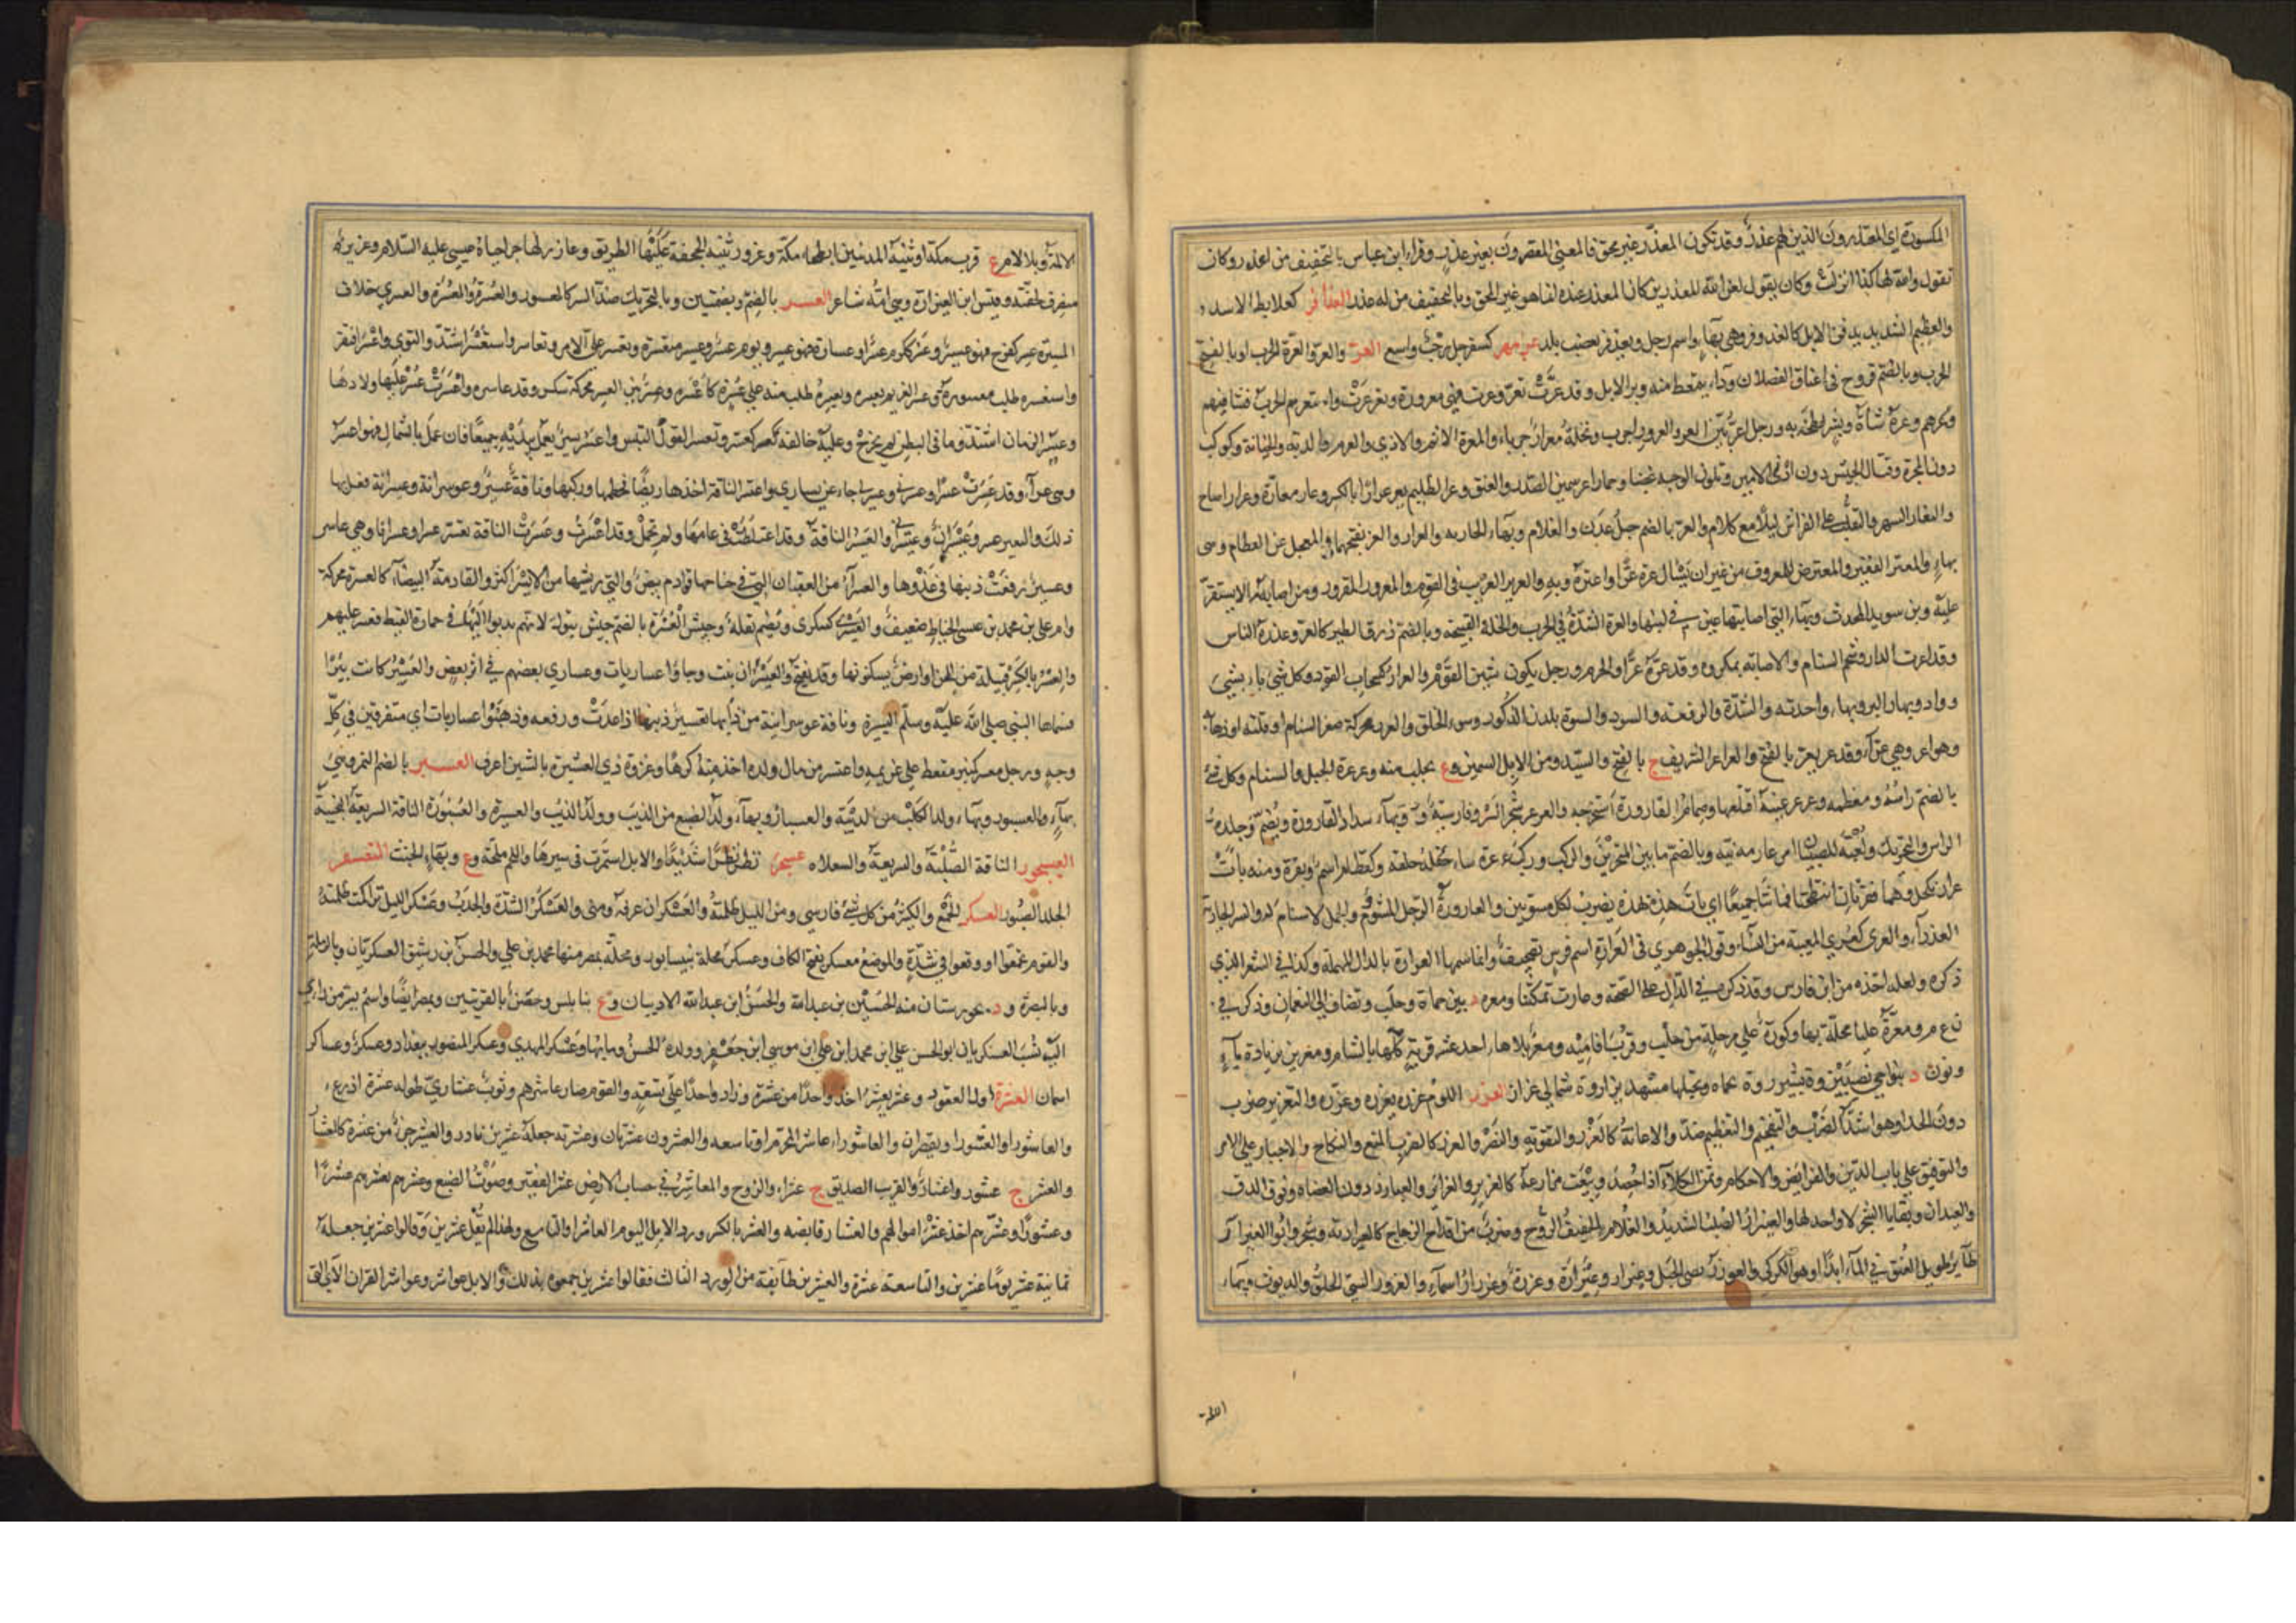 المكسورة اي المعتذرون الذين لهم عذر وقد تكون المعذّر غير محق فالمعنى المقصرون بغير عذر وقراء ابن عباس بالتخفيف من اعذر وكان
يقول والله لهكذا انزلت وكان يقول لعن الله المعذرين كان المعذر عنده انما هو غير المحق وبالتخفيف من له عذر العذافر كعلابط الاسد و
والعظيم الشديد من الابل كالعذوفر وهي بهاء واسم رجل وتعذفر تغضب بلد عرمهر كسفرجل رحب واسع العرّ والعرّ والعرّة الجرب او بالفتح
الجرب وبالضم قروح في اعناق الفصلان وداء يتمعط منه وبر الابل وقد عرّت تعرّ وعرت فهي معرورة وتعرعرت واستعرهم الجرب فشا فيهم
وعرهم وعره ساءه وبشر لطخه به ورجل اعرّ بيّن العرر والعرور اجرب ونخلة معرار جرباء والمعرة الاثم والاذى والغرم والدية والخيانة وكوكب
دون المجرة وقتال الجيش دون اذن الامير وتلون الوجه غضبا وحمار اعر سمين الصدر والعنق وعر الظليم يعر عرارا بالكسر وعار معارة وعرارا صاح
والتعار السهر والتقلب على الفراش ليلا مع كلام والعر بالضم جبل عدن والغلام وبهاء الجارية والعرار والعر بفتحهما المعجل عن الفطام وهي
بهاء والمعتر الفقير والمعترض للمعروف من غير ان يسال عره عرّا واعتره وبه والعرير الغريب في القوم والمعرور المقرور ومن اصابه ما لا يستقر
عليه وبن سويد المحدث وبهاء التي اصابتها عين في لبنها والعرة الشدة في الحرب والخلة القبيحة وبالضم ذرق الطير كالعر وعذرة الناس
وقد اعرت الدار وشحم السنام والاصابة بمكروه وقد عرّه عرّا والجرم ورجل يكون شين القوم والعرار كسحاب القود وكل شيء باء بشيء
وواد وبهار البر وبهاء واحدته والشدة والرفعة والسودد والنسوة يلدن الذكور وسوء الخلق والعرر محركة صغر السنام او قلته او ذهابه
وهو اعر وهي عراء وقد عر يعر بالفتح والعراعر الشريف ج بالفتح والسيد ومن الابل السمين وع يجلب منه وعرعرة الجبل والسنام وكل شيء
بالضم راسه ومعظمه وعرعر عينه اقتلعها وصمام القارورة استخرجه والعرعر شجر السرو فارسية وع وبهاء سداد القارورة ويضم وجلدة
الراس والتحريك ولعبة للصبيان وبالضم ما بين المنخرين والركب وركب عرعره ساء خلقه وكقطام اسم بقرة ومنه باءت
عرار بكحل وهما بقرتان انتطحتا فماتتا جميعا اي باءت هذه بهذه يضرب لكل مستويين والعارورة الرجل المشؤوم والجمل لا سنام له
العذراء والعرى كعزى المعيبة من النساء وقول الجوهري في العرارة اسم فرس تصحيف وانما اسمها العرادة بالدال المهملة وكذا في الشعر الذي
ذكره ولعله اخذه من ابن فارس وقد ذكره في الدال على الصحة وعاررت تمكثت ومعرة د بين حماة وحلب وتضاف الى النعمان وذكر في
ن ع م ومعرة عليا محلة بها وكورة على مرحلة من حلب وقرب افامية ومعر بلا هاء احد عشر قرية كلها بالشام ومعرين بزيادة ياء
ونون د بنواحي نصيبين وة بشيزر وة بحماه وبجبلها مشهد يزار وة شمالي عزاز العزر اللوم عزره يعزره وعزّره والتعزير ضرب
دون الحد او هو اشد الضرب والتفخيم والتعظيم ضد والاعانة كالعزر والتقوية والنصر والعزر كالضرب المنع والنكاح والاجبار على الامر
والتوقيف على باب الدين والفرايض والاحكام وثمن الكلاء اذا حصد وبيعت مزارعه كالعزير والعزائر والعيازر دون العضاه وفوق الدق
والعيدان وبقايا الشجر لا واحد لها والعيزار الصلب الشديد والغلام الخفيف الروح وضرب من اقداح الزجاج كالعيزارية وشجر وابو العيزار
طائر طويل العنق في الماء ابدا او هو الكركي والعوزر نصي الجبل وعيزار وعيزارة وعزرة وعزران اسماء والعزور السيئ الخلق والديوث وبهاء
الاكمة
الاكمة وبلا لام ع قرب مكة او ثنية المدنيين الى بطحاء مكة وعزور ثنية الجحفة عليها الطريق وعازر احياه عيسى عليه السلام وعزير
ينصرف لخفته وقيس ابن العيزارة وهي امه شاعر العسر بالضم وبضمتين وبالتحريك ضد اليسر كالمعسور والعسرة والعسرة والعسرى خلاف
الميسرة عسر كفرح فهو عسر وعسر ككرم عسرا وعسارة فهو عسير ويوم عسر وعسير متعسرة وتعسر علي الامر وتعاسر واستعسر اشتد والتوى واعسر افتقر
واستعسره طلب معسوره وعسر الغريم يعسره ويعسره طلب منه على عسرة كاعسره وعسر بيّن العسر محركة شكس وقد عاسره واعسرت عسر عليها ولادها
وعسر الزمان اشتد وما في البطن لم يخرج وعليه خالفه كعسر وتعسر القول التبس واعسر يسر يعمل بيديه جميعا فان عمل بالشمال فهو اعسر
وهي عسراء وقد عسرت عسرا وعسرني وعسرني جاء عن يساري واعتسر الناقة اخذها ريضا فخطمها وركبها وناقة عسير وعوسرانة وعيسرانة فعل بها
ذلك والبعير عسير وعيسران والعسير الناقة قد اعتاطت في عامها ولم تحمل وقد اعسرت وعسرت الناقة تعسر عسرا وعسرانا وهي عاسر
وعسير رفعت ذنبها في عدوها والعسراء من العقبان التي في جناحها قوادم بيض والتي ريشها من الايسر اكثر والقادمة البيضاء كالعسرة محركة
وام علي بن محمد بن عيسى الخياط ضعيف والعسرى كسكرى وتضم بقلة وجيش العسرة بالضم جيش تبوك لانهم ندبوا اليها في حمارة القيظ فعسر عليهم
والعسر بالكسر قبيلة من الجن او ارض يسكنونها وقد تفتح والعيسران نبت وجاؤا عساريات وعسارى بعضهم في اثر بعض والعسير كانت بئرا
فسماها النبي صلى الله عليه وسلم اليسيرة وناقة عوسرانية من دابها تعسير ذنبها اذا عدت ورفعه وذهبوا عساريات اي متفرقين في كل
وجه ورجل معسر كمنبر مقعط على غريمه واعتسر من مال ولده اخذ منه كرها وغزوة ذي العشيرة بالشين اعرف العسبر بالضم النمر وهي
بهاء والعسبور وبهاء ولد الكلب من الذئبة والعسبار وبهاء ولد الضبع من الذئب وولد الذئب والعسبرة والعسبورة الناقة السريعة النجيبة
العيسجور الناقة الصلبة والسريعة والسعلاة عسجر نظر نظرا شديدا والابل استمرت في سيرها واللحم ملحه وع وبهاء الخبث
الجلد الصبور العسكر الجمع والكثير من كل شيء فارسي ومن الليل ظلمته والعسكران عرفة ومنى والعسكرة الشدة والجدب وعسكر الليل تراكمت ظلمته
والقوم تجمعوا او وقعوا في شدة والموضع معسكر بفتح الكاف وعسكر محلة بنيسابور ومحلة بمصر منها محمد بن علي والحسن بن رشيق العسكريان وبالرملة
وبالبصرة ود بخورستان منه الحسين بن عبد الله والحسن ابن عبد الله الاديبان وع بنابلس وحصن بالقريتين وبمصر ايضا واسم سر من رأى
اليه نسب العسكريان ابو الحسن علي ابن محمد ابن علي ابن موسى ابن جعفر وولده الحسن وماتا بها وعسكر المهدي وعسكر المنصور ببغداد وعسكر وعساكر
اسمان العشرة اول العقود وعشر يعشر اخذ واحدا من عشرة وزاد واحدا على تسعة والقوم صار عاشرهم وثوب عشاري طوله عشرة اذرع
والعاشورا والعشورا ويقصران والعاشور عاشر المحرم او تاسعه والعشرون عشرتان وعشرنه جعله عشرين نادر والعشير جزء من عشرة كالمعشار
والعشر ج عشور واعشار والقريب الصديق ج عشراء والزوج والمعاشر وفي حساب الارض عشر القفيز وصوت الضبع وعشرهم يعشرهم عشرا
وعشورا وعشرهم اخذ عشر اموالهم والعشار قابضه والعشر بالكسر ورد الابل اليوم العاشر او التاسع ولهذا لم يقل عشرين وقالوا عشرين جعله
ثمانية عشر يوما عشرين والتاسعة عشرة والعشرين طائفة من الورد الثالث فقالوا عشرين جمعوه بذلك والابل عواشر وعواشر القران الاي التي